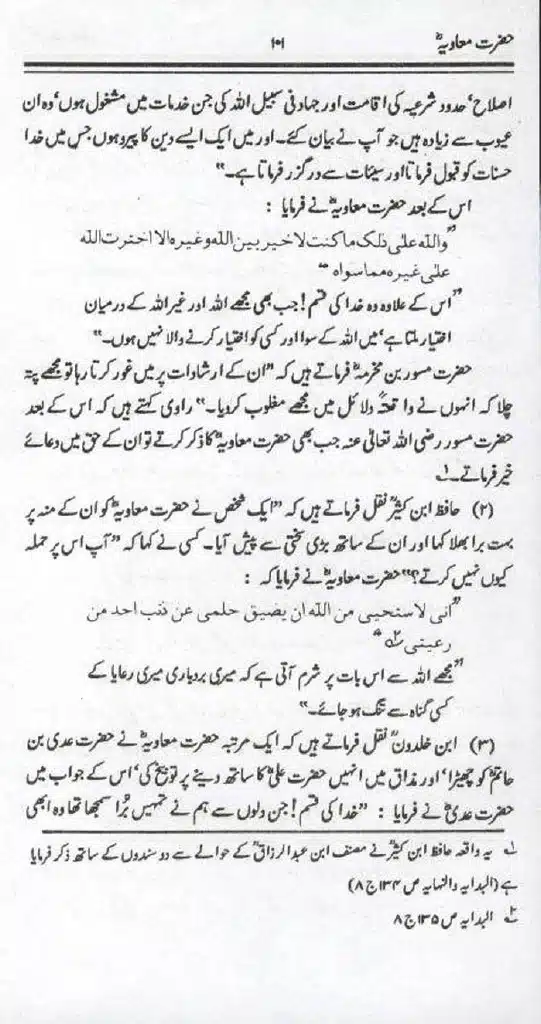 حضرت معاویہؓ ۱۰۱
اصلاح، حدود شرعیہ کی اقامت اور جہاد فی سبیل اللہ کی جن خدمات میں مشغول ہوں، وہ ان
عیوب سے زیادہ ہیں جو آپ نے بیان کئے۔ اور میں ایک ایسے دین کا پیرو ہوں جس میں خدا
حسنات کو قبول فرماتا اور سیئات سے درگزر فرماتا ہے۔"
اس کے بعد حضرت معاویہؓ نے فرمایا :
"واللّٰہ علی ذلک ما کنت لا خیر بین اللّٰہ وغیرہ الا اخترت اللّٰہ
علی غیرہ مما سواہ"
"اس کے علاوہ وہ خدا کی قسم! جب بھی مجھے اللہ اور غیر اللہ کے درمیان
اختیار ملتا ہے، میں اللہ کے سوا اور کسی کو اختیار کرنے والا نہیں ہوں۔"
حضرت مسور بن مخرمہؓ فرماتے ہیں کہ "ان کے ارشادات پر میں غور کرتا رہا تو مجھے پتہ
چلا کہ انہوں نے واقعۃً دلائل میں مجھے مغلوب کر دیا۔" راوی کہتے ہیں کہ اس کے بعد
حضرت مسور رضی اللہ تعالیٰ عنہ جب بھی حضرت معاویہؓ کا ذکر کرتے تو ان کے حق میں دعائے
خیر فرماتے۔ ۱؎
(۲) حافظ ابن کثیرؒ نقل فرماتے ہیں کہ "ایک شخص نے حضرت معاویہؓ کو ان کے منہ پر
بہت برا بھلا کہا اور ان کے ساتھ بڑی سختی سے پیش آیا۔ کسی نے کہا کہ "آپ اس پر حملہ
کیوں نہیں کرتے؟" حضرت معاویہؓ نے فرمایا کہ :
"انی لا ستحیی من اللّٰہ ان یضیق حلمی عن ذنب احد من
رعیتی ۲؎"
"مجھے اللہ سے اس بات پر شرم آتی ہے کہ میری بردباری میری رعایا کے
کسی گناہ سے تنگ ہو جائے۔"
(۳) ابن خلدونؒ نقل فرماتے ہیں کہ ایک مرتبہ حضرت معاویہؓ نے حضرت عدی بن
حاتمؓ کو چھیڑا، اور مذاق میں انہیں حضرت علیؓ کا ساتھ دینے پر توبیخ کی، اس کے جواب میں
حضرت عدیؓ نے فرمایا : "خدا کی قسم! جن دلوں سے ہم نے تمہیں بُرا سمجھا تھا وہ ابھی
۱؎ یہ واقعہ حافظ ابن کثیرؒ نے مصنف ابن عبدالرزاقؒ کے حوالے سے دو سندوں کے ساتھ ذکر فرمایا
ہے (البدایہ والنہایہ ص ۱۳۴ ج ۸)
۲؎ البدایہ ص ۱۳۵ ج ۸